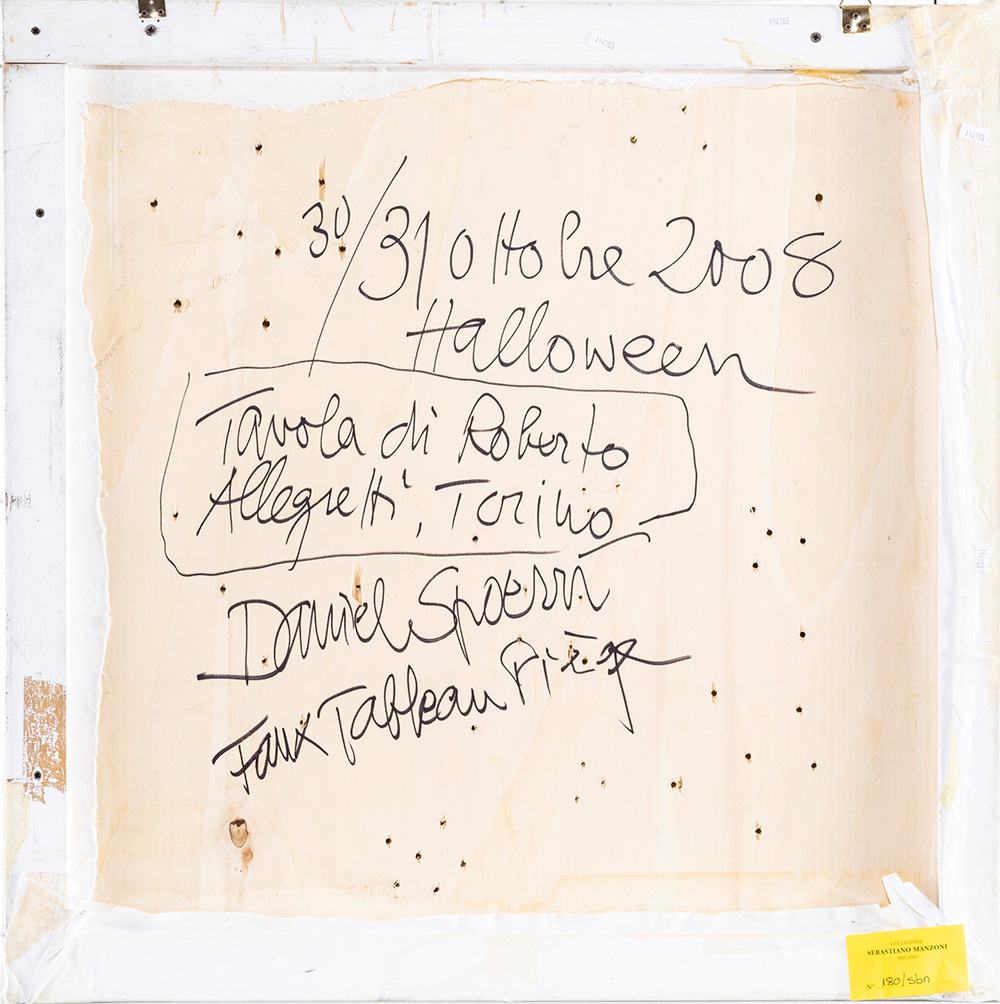 114703
114703
114703
30/31 Ottobre 2008
Halloween
Tavola di Roberto
Allegretti, Torino
Daniel Spoerri
Faux Tableau Piège
COLLEZIONE
SEBASTIANO MANZONI
MILANO
N° 180/sbn